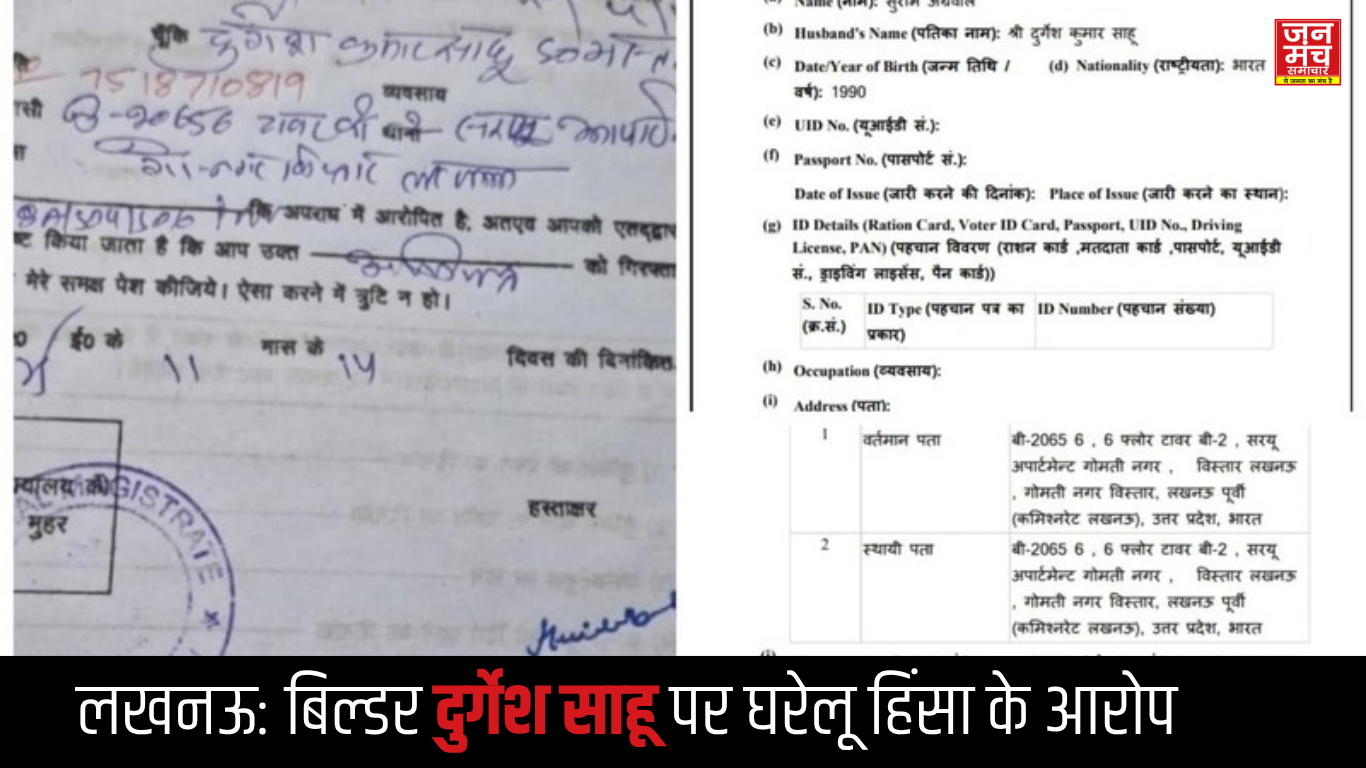 चूँकि दुर्गेश कुमार साहू
7518710819
व्यवसाय
थाना
कि अपराध में आरोपित है, अतएव आपको एतद्द्वार
किया जाता है कि आप उक्त
को गिरफ्ता
मेरे समक्ष पेश कीजिये। ऐसा करने में त्रुटि न हो।
ई0 के 11 मास के 14 दिवस की दिनांकित
मुहर
MAGISTRATE
हस्ताक्षर
Name (नाम):
(b) Husband's Name (पतिका नाम): श्री दुर्गेश कुमार साहू
(c) Date/Year of Birth (जन्म तिथि / (d) Nationality (राष्ट्रीयता): भारत
वर्ष): 1990
(e) UID No. (यूआईडी सं.):
(f) Passport No. (पासपोर्ट सं.):
Date of Issue (जारी करने की दिनांक): Place of Issue (जारी करने का स्थान):
(g) ID Details (Ration Card, Voter ID Card, Passport, UID No., Driving
License, PAN) (पहचान विवरण (राशन कार्ड ,मतदाता कार्ड ,पासपोर्ट, यूआईडी
सं., ड्राइविंग लाइसेंस, पैन कार्ड))
S. No. ID Type (पहचान पत्र का ID Number (पहचान संख्या)
(क्र.सं.) प्रकार)
(h) Occupation (व्यवसाय):
(i) Address (पता):
1 वर्तमान पता बी-2065 6 , 6 फ्लोर टावर बी-2 , सरयू
अपार्टमेन्ट गोमती नगर , विस्तार लखनऊ
, गोमती नगर विस्तार, लखनऊ पूर्वी
(कमिश्नरेट लखनऊ), उत्तर प्रदेश, भारत
2 स्थायी पता बी-2065 6 , 6 फ्लोर टावर बी-2 , सरयू
अपार्टमेन्ट गोमती नगर , विस्तार लखनऊ
, गोमती नगर विस्तार, लखनऊ पूर्वी
(कमिश्नरेट लखनऊ), उत्तर प्रदेश, भारत
जन
मंच
समाचार
ये जनता का मंच है
लखनऊ: बिल्डर दुर्गेश साहू पर घरेलू हिंसा के आरोप